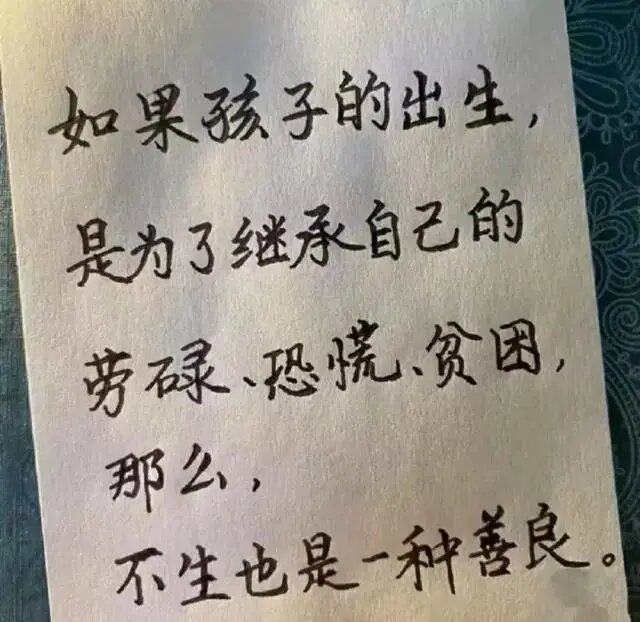 如果孩子的出生，
是为了继承自己的
劳碌、恐慌、贫困，
那么，
不生也是一种善良。